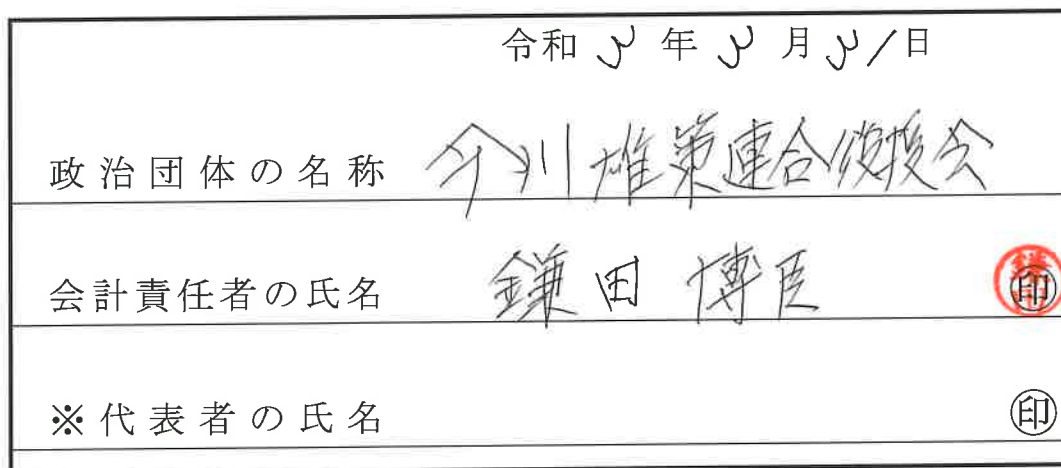 令和3年3月31日
政治団体の名称 今川雄策連合後援会
会計責任者の氏名 鎌田博臣 印
※代表者の氏名 印